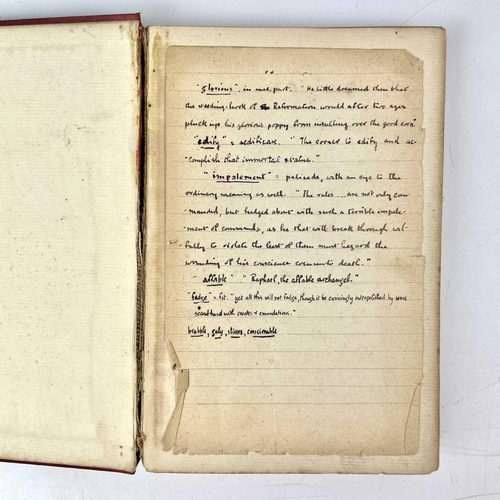 "glorious", in mal. part. "He little dreamed then that
the weeding-hook of Reformation would after two ages
pluck up his glorious poppy from insulting over the good corn"
"edify" = aedificare. "The corner to edify and ac-
complish that immortal statue."
"impalement" = palisade, with an eye to the
ordinary meaning as well. "The rules ... are not only com
manded, but hedged about with such a terrible impale-
ment of commands, as he that will break through wil-
fully to violate the least of them must hazard the
wounding of his conscience even unto death."
"affable" "Raphael, the affable archangel."
"fadge" = fit. "yet all this will not fadge, though it be cunningly interpolished by some
second hand with crooks & emendations."
brabble, conscionable